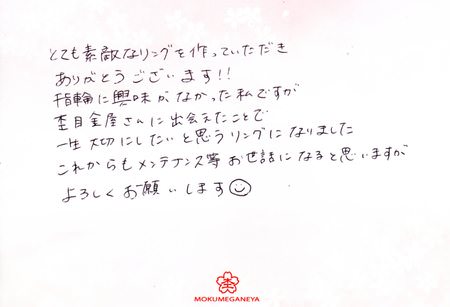 とても素敵なリングを作っていただき
ありがとうございます!!
指輪に興味がなかった私ですが
杢目金屋さんに出会えたことで
一生大切にしたいと思うリングになりました
これからもメンテナンス等お世話になると思いますが
よろしくお願いします☺
MOKUMEGANEYA